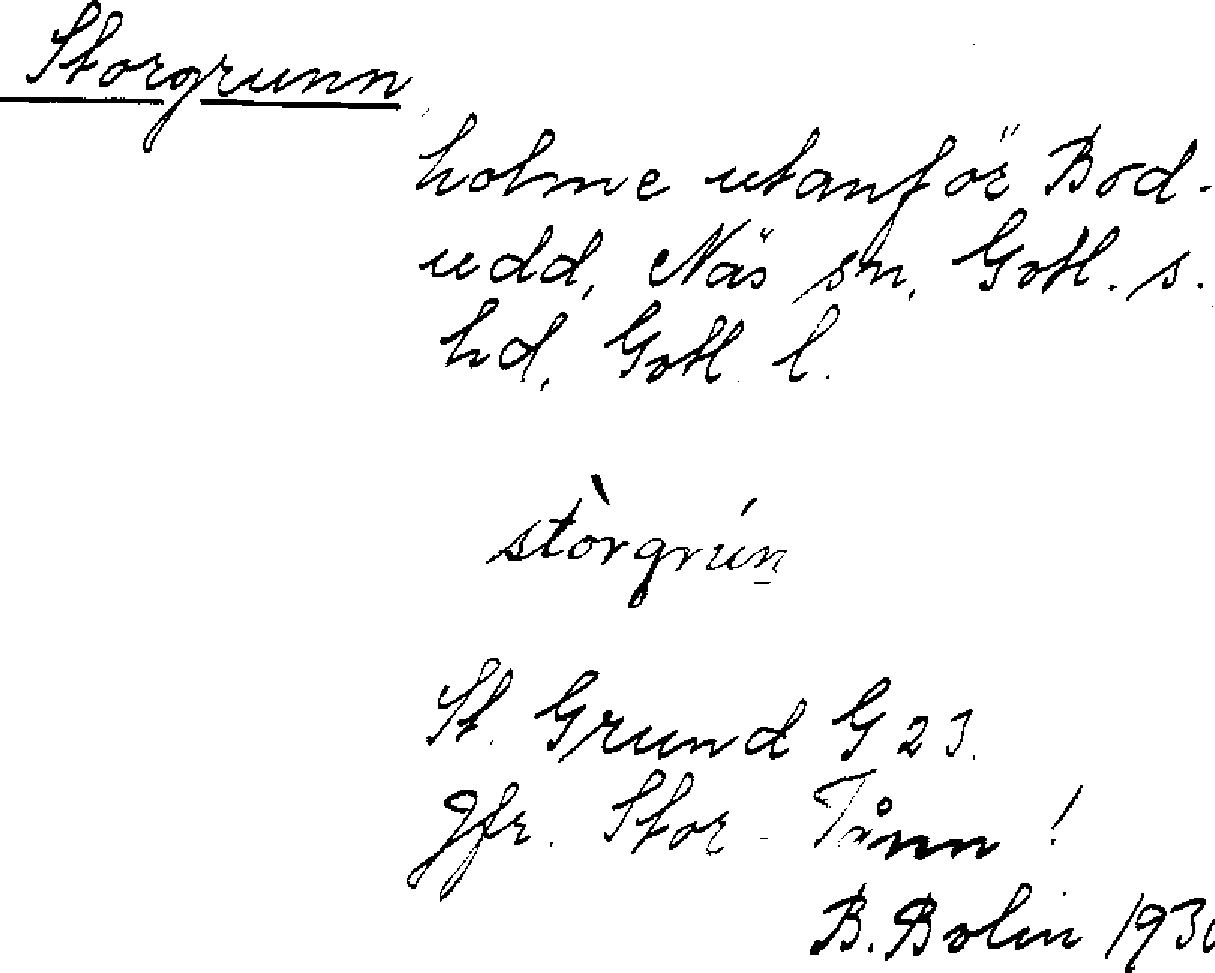 Storgrunn
holme utanför Bod-
udd, Näs sn, Gotl. s.
hd, Gotl. l.
stòrgrún̲
St. Grund G 23.
Jfr. Stor-Tånn!
B. Bolin 193